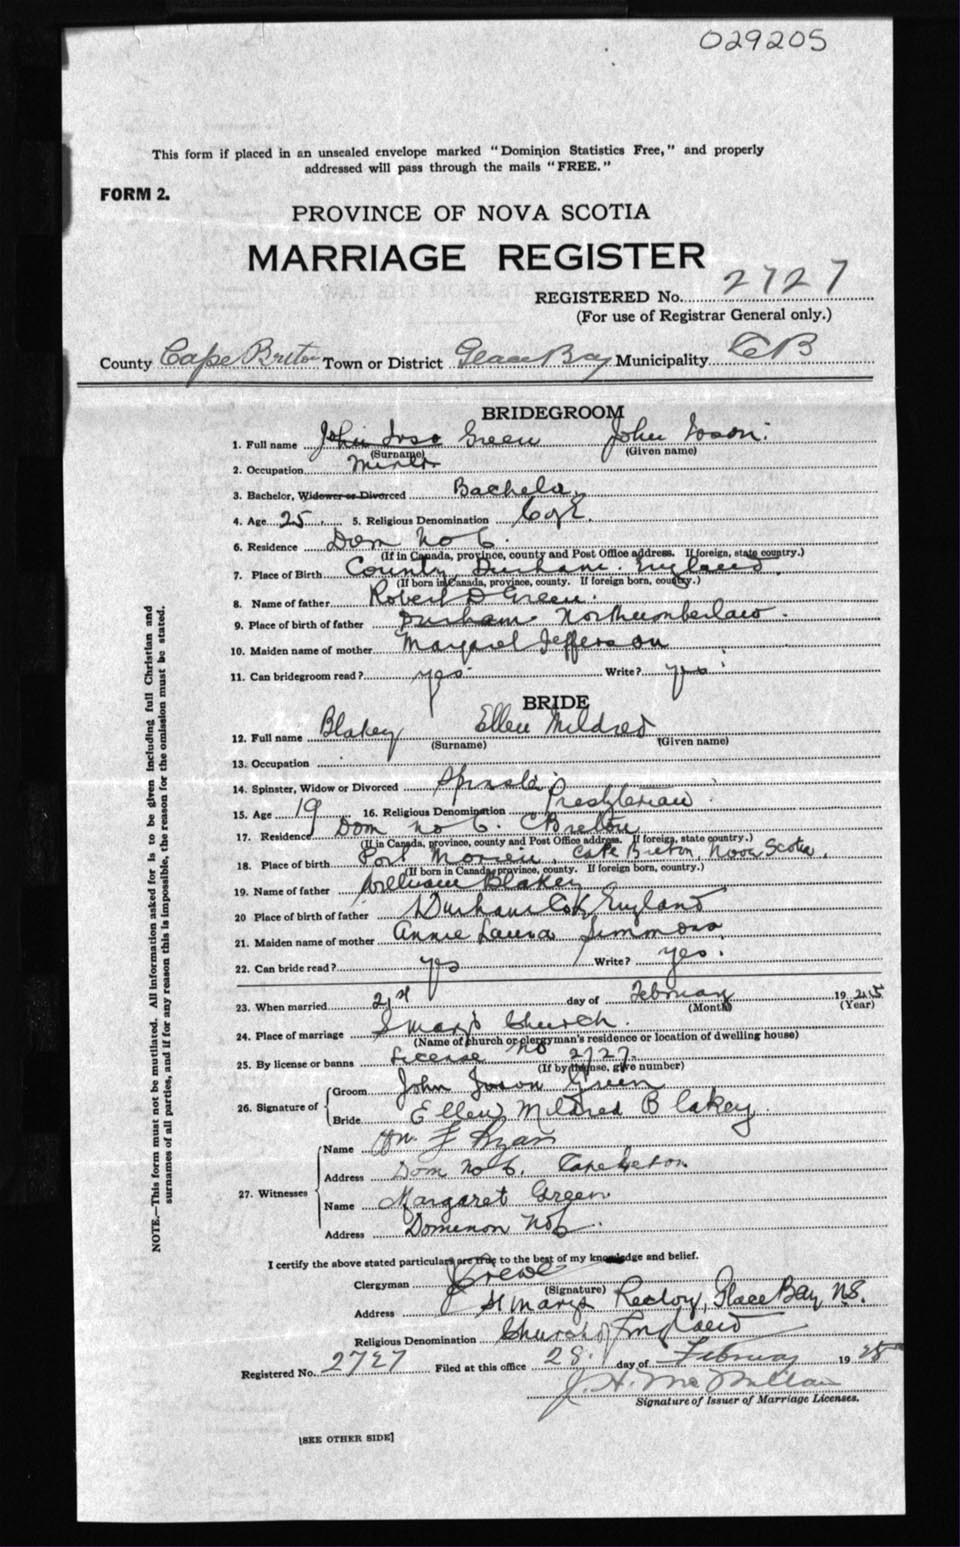 029205
This form if placed in an unsealed envelope marked "Dominion Statistics Free," and properly
addressed will pass through the mails "FREE."
FORM 2.
PROVINCE OF NOVA SCOTIA
MARRIAGE REGISTER
REGISTERED No. 2727
(For use of Registrar General only.)
County Cape Breton Town or District Glace Bay Municipality CB
BRIDEGROOM
1. Full name John Green John
(Surname) (Given name)
2. Occupation Miner
3. Bachelor, Widower or Divorced Bachelor
4. Age 25 5. Religious Denomination C of E.
6. Residence Dom No 6.
(If in Canada, province, county and Post Office address. If foreign, state country.)
7. Place of Birth County Durham. England.
(If born in Canada, province, county. If foreign born, country.)
8. Name of father Robert D Green.
9. Place of birth of father Durham
10. Maiden name of mother Margaret Jefferson
11. Can bridegroom read? yes Write? yes
BRIDE
12. Full name Blakey Ellen Mildred
(Surname) (Given name)
13. Occupation
14. Spinster, Widow or Divorced Spinster
15. Age 19 16. Religious Denomination Presbyterian
17. Residence Dom No 6. C Breton
(If in Canada, province, county and Post Office address. If foreign, state country.)
18. Place of birth Port Morien, Cape Breton, Nova Scotia.
(If born in Canada, province, county. If foreign born, country.)
19. Name of father William Blakey
20 Place of birth of father Durham Co, England
21. Maiden name of mother Annie Laura Simmons
22. Can bride read? yes Write? yes.
23. When married 21st day of February 1925
(Month) (Year)
24. Place of marriage St Mary's Church.
(Name of church or clergyman's residence or location of dwelling house)
25. By license or banns License No 2727.
(If by license, give number)
26. Signature of Groom John Green
Bride Ellen Mildred Blakey.
27. Witnesses Name Wm F Ryan
Address Dom No 6. Cape Breton
Name Margaret Green
Address Dominion No 6.
I certify the above stated particulars are true to the best of my knowledge and belief.
Clergyman
(Signature)
Address St Mary's Rectory, Glace Bay N.S.
Religious Denomination Church of England
Registered No. 2727 Filed at this office 28 day of February 1925
J. H. McMillan
Signature of Issuer of Marriage Licenses.
[SEE OTHER SIDE]
NOTE.—This form must not be mutilated. All information asked for is to be given including full Christian and
surnames of all parties, and if for any reason this is impossible, the reason for the omission must be stated.